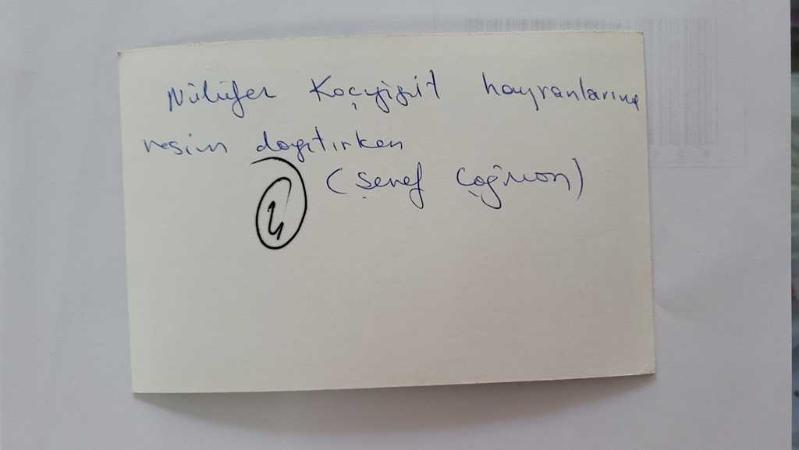 Nilüfer Koçyiğit hayranlarına
resim dağıtırken
(Şeref Çağman)